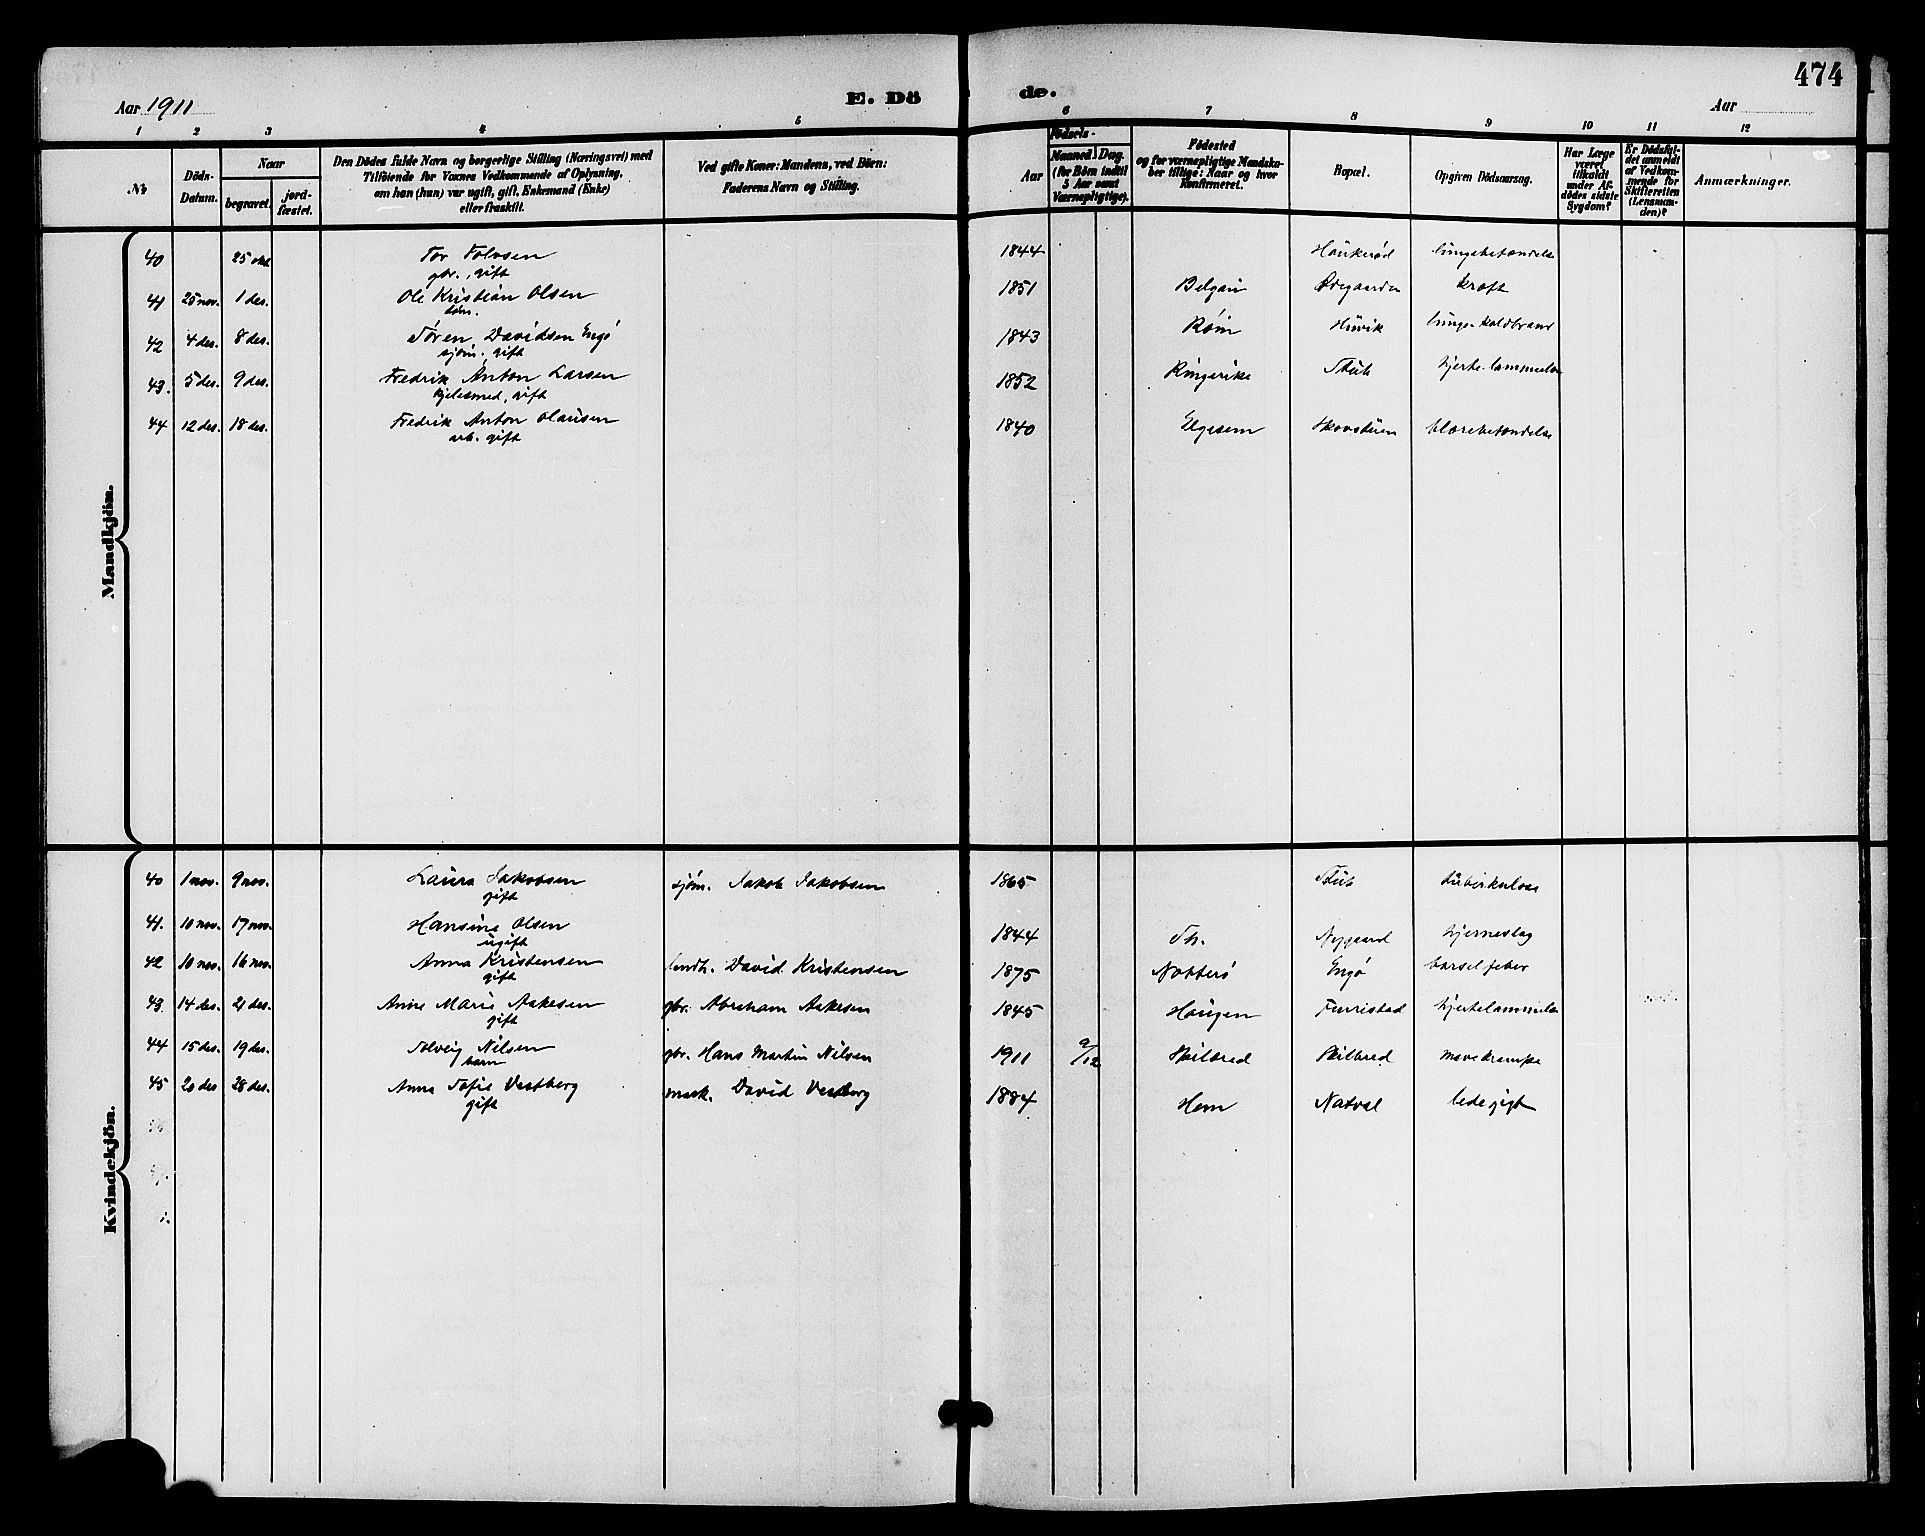 474
Aar 1911
E. Dö
de.
Aar
1 2 3 4 5 6 7 8 9 10 11 12
№
Döds-Datum.
Naar
begravet.
jord-fæstet.
Den Dödes fulde Navn og borgerlige Stilling (Næringsvei) med
Tilföiende for Voxnes Vedkommende af Oplysning,
om han (hun) var ugift, gift, Enkemand (Enke)
eller fraskilt.
Ved gifte Koner: Mandens, ved Börn:
Faderens Navn og Stilling.
Födsels-
Aar
Maaned. Dag.
(for Börn indtil
5 Aar samt
Værnepligtige).
Födested
og for værnepligtige Mandska-
ber tillige: Naar og hvor
Konfirmeret.
Bopæl.
Opgiven Dödsaarsag.
Har Læge
været
tilkaldt
under Af-
dödes sidste
Sygdom?
Er Dödsfal-
det anmeldt
af Vedkom-
mende for
Skifteretten
(Lensman-
den)?
Anmærkninger.
Mandkjön.
40 25 okt. Tor Tolvsen 1844 Haukerød lungebetændelse
gbr., gift
41 25 nov. 1 des. Ole Kristian Olsen 1851 Ødegaarden kræft
42 4 des. 8 des. Søren Davidsen Engø 1843 Røin Huvik lunge-koldbrand
sjøm., gift
43. 5 des. 9 des. Fredrik Anton Larsen 1852 Ringerike Stub hjerte-lammelse
kjelesmed, gift
44 12 des. 18 des. Fredrik Anton Olausen 1840 Elgesem blærebetændelse
arb. gift
Kvindekjön.
40 1 nov. 9 nov. Laura Jakobsen sjøm. Jakob Jakobsen 1865 Stub tuberkulose
gift
41. 10 nov. 17 nov. Hansine Olsen 1844 Th. Nygaard hjerneslag
ugift
42 10 nov. 16 nov. Anna Kristensen landh. David Kristensen 1875 Nøtterø Engø barselfeber
gift
43. 14 des. 21 des. Anne Marie Aakesen gbr. Abraham Aakesen 1845 Haugen Furustad hjertelammelse
gift
44 15 des. 19 des. Solveig Nilsen gbr. Hans Martin Nilsen 1911 9/12 Skilbred Skilbred mavekrampe
barn
45 20 des 28 des. Anna Sofie Vestberg mask. David Vestberg 1884 Hem Natval ledegigt
gift